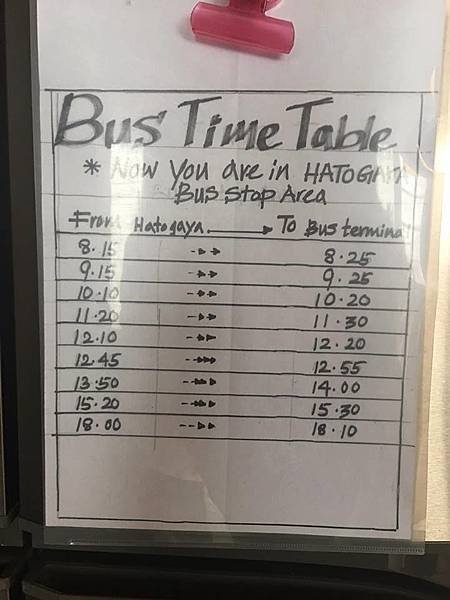 Bus Time Table
* Now you are in HATOGAYA
Bus Stop Area
From Hatogaya. → To Bus terminal
8.15 --▸▸ 8.25
9.15 --▸▸ 9.25
10.10 --▸▸ 10.20
11.20 --▸▸ 11.30
12.10 --▸▸ 12.20
12.45 --▸▸▸ 12.55
13.50 --▸▸▸ 14.00
15.20 --▸▸▸ 15.30
18.00 --▸▸ 18.10